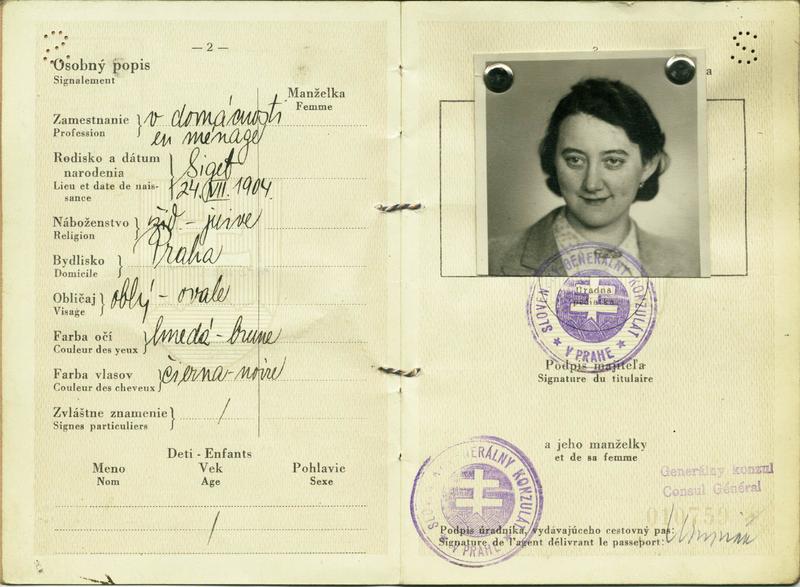 — 2 —
Osobný popis
Signalement
Manželka
Femme
Zamestnanie
Profession
v domácnosti
en ménage
Rodisko a dátum
narodenia
Lieu et date de nais-
sance
Siget
24. VII. 1904.
Náboženstvo
Religion
žid - juive
Bydlisko
Domicile
Praha
Obličaj
Visage
oblý - ovale
Farba očí
Couleur des yeux
hnedá - brune
Farba vlasov
Couleur des cheveux
čierna - noire
Zvláštne znamenie
Signes particuliers
/
Deti - Enfants
Meno Vek Pohlavie
Nom Age Sexe
/
S
S
GENERÁLNY KONZULÁT
SLOVEN
★ V PRAHE ★
Úradná
pečiatka
Podpis majiteľa
Signature du titulaire
a jeho manželky
et de sa femme
GENERÁLNY KONZULÁT
SLOVEN
★ V PRAHE ★
Generálny konzul
Consul Général
010759
Podpis úradníka, vydávajúceho cestovný pas:
Signature de l'agent délivrant le passeport: